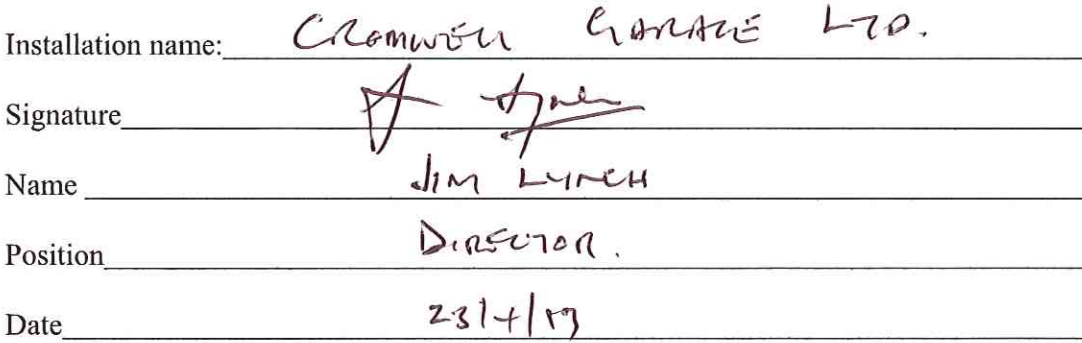 Installation name: CROMWELL GARAGE LTD.
Signature
Name JIM LYNCH
Position DIRECTOR.
Date